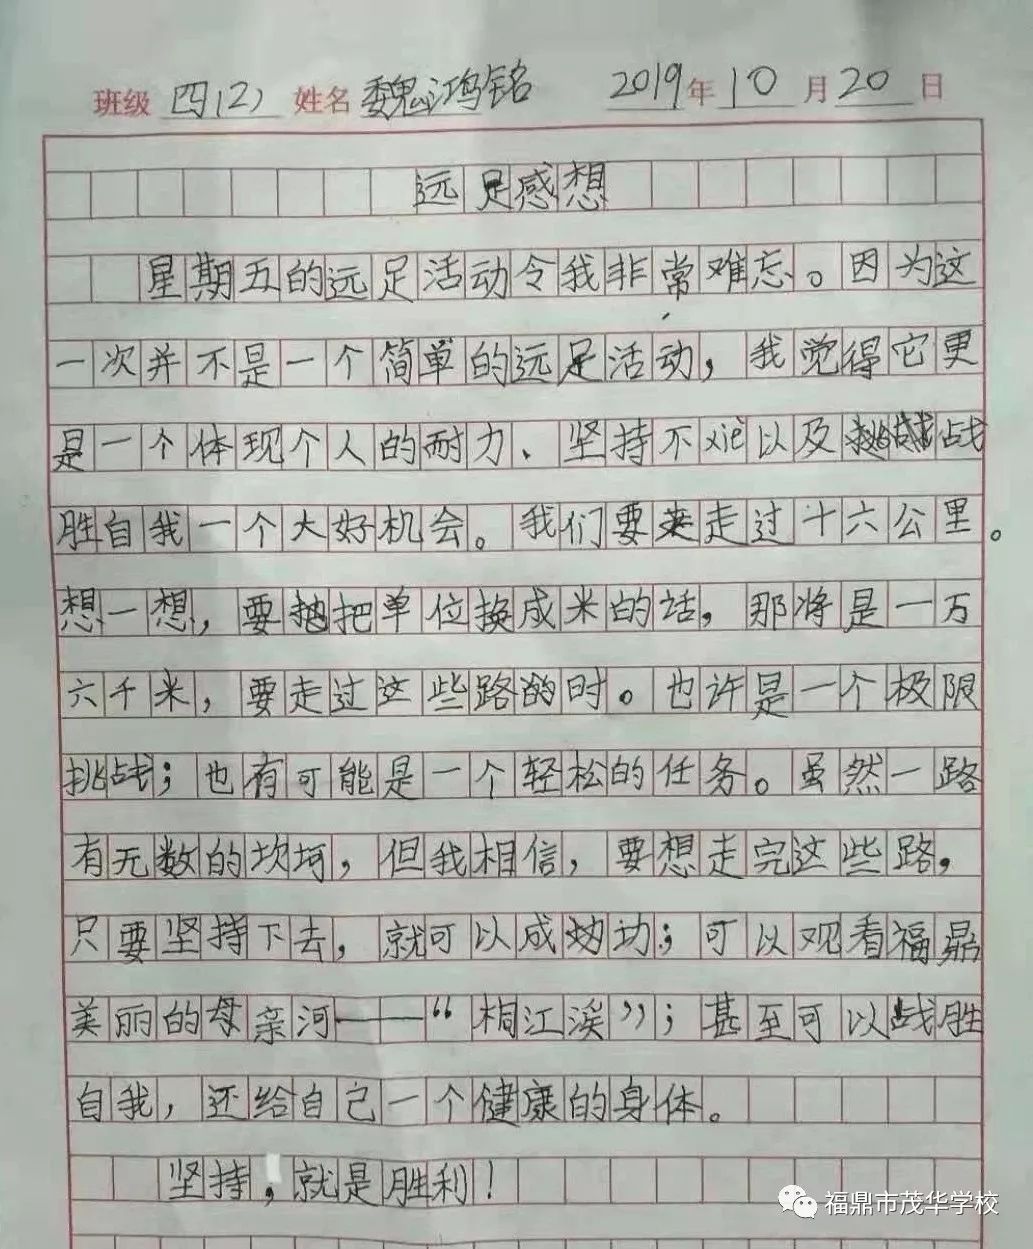 班级 四(2) 姓名 魏鸿铭 2019年10月20日
远足感想
星期五的远足活动令我非常难忘。因为这
一次并不是一个简单的远足活动，我觉得它更
是一个体现个人的耐力、坚持不xiè以及战
胜自我一个大好机会。我们要走过十六公里。
想一想，要把单位换成米的话，那将是一万
六千米，要走过这些路的时。也许是一个极限
挑战；也有可能是一个轻松的任务。虽然一路
有无数的坎坷，但我相信，要想走完这些路，
只要坚持下去，就可以成功；可以观看福鼎
美丽的母亲河——“桐江溪”；甚至可以战胜
自我，还给自己一个健康的身体。
坚持，就是胜利！
福鼎市茂华学校